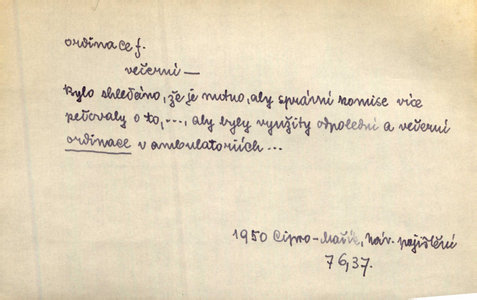 ordinace f.
večerní —
Bylo shledáno, že je nutno, aby správní komise více
pečovaly o to, ..., aby byly využity odpolední a večerní
ordinace v ambulatoriích ...
1950 Cipro-Mařík, Nár. pojištění
76,37.